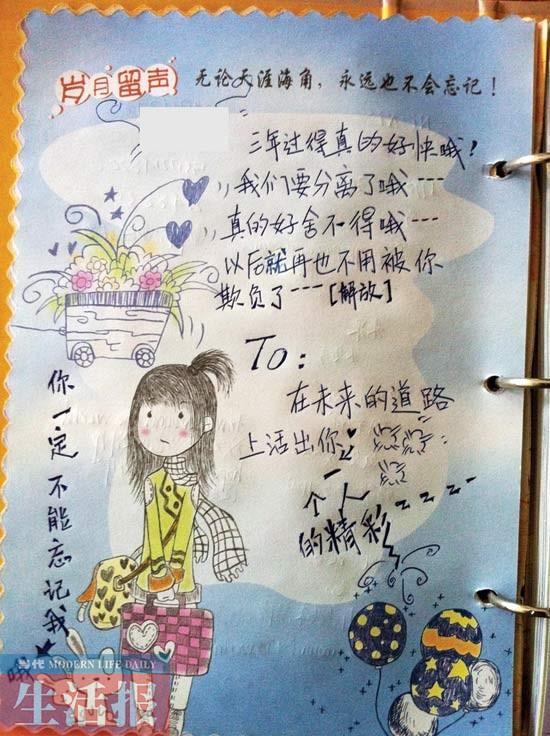 岁月留声
无论天涯海角，永远也不会忘记！
三年过得真的好快哦！
我们要分离了哦---
真的好舍不得哦---
以后就再也不用被你
欺负了---【解放】
To：
在未来的道路
上活出你
一个人
的精彩
你一定不能忘记我哦
时代 MODERN LIFE DAILY
生活报